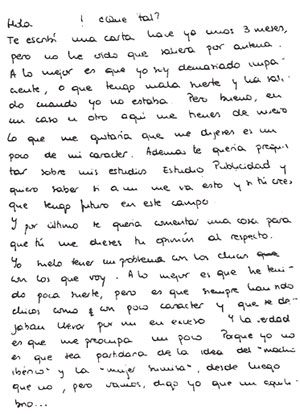 Hola. ! ¿Qué tal?
Te escribí una carta hace yo unos 3 meses,
pero no he oído que saliera por antena.
A lo mejor es que yo soy demasiado impa-
ciente, o que tengo mala suerte y ha sali-
do cuando yo no estaba. Pero bueno, en
un caso u otro aquí me tienes de nuevo
Lo que me gustaría que me dijeras es un
poco de mi caracter. Además te quería pregun-
tar sobre mis estudios Estudio Publicidad y
quiero saber si a mi me va esto y si tú crees
que tengo futuro en este campo.
Y por último te quería comentar una cosa para
que tú me dieses tu opinión al respecto.
Yo suelo tener un problema con los chicos
con los que voy. A lo mejor es que he teni-
do poca suerte, pero es que siempre han sido
chicos como con poco caracter y que se de-
jaban llevar por mi en exceso Y la verdad
es que me preocupa un poco Porque yo no
es que sea partidaria de la idea del "macho
ibérico" y la "mujer sumisa", desde luego
que no, pero vamos, digo yo que un equili-
brio...